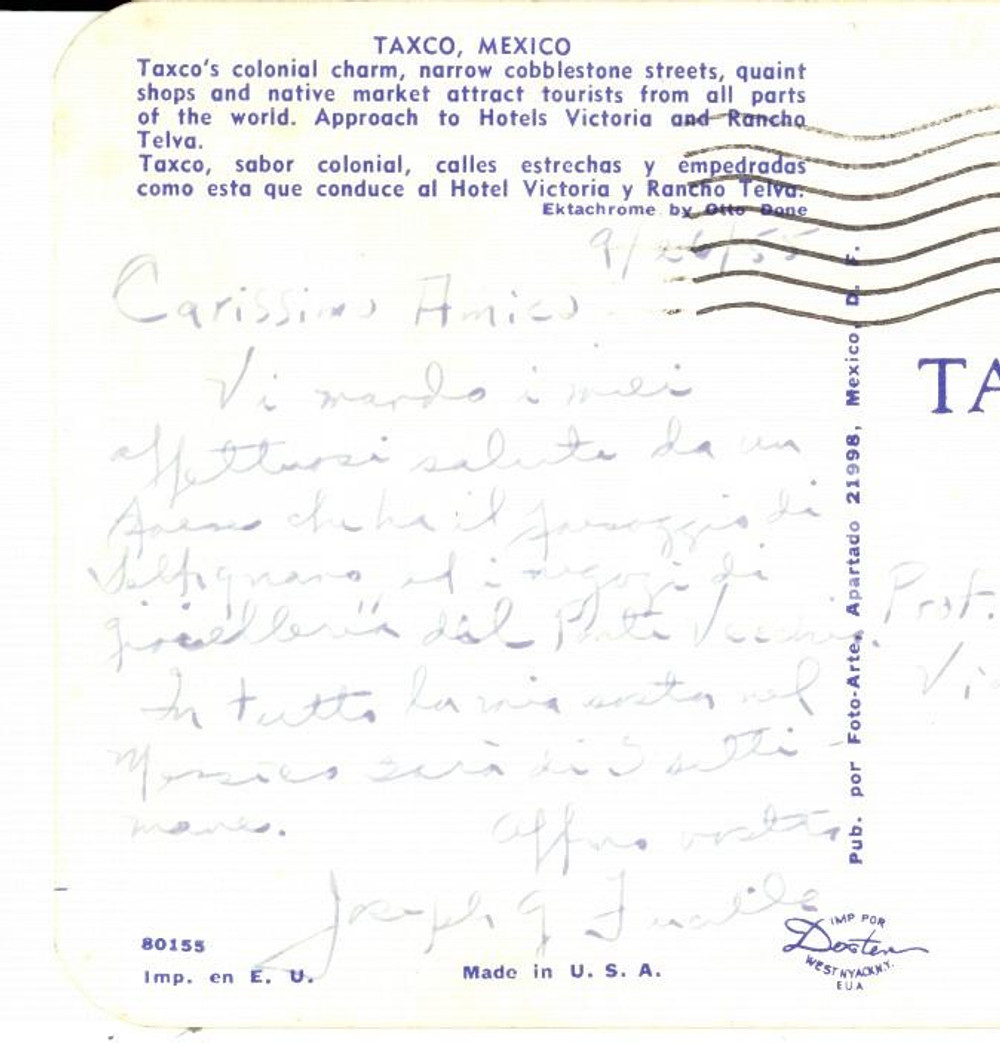 TAXCO, MEXICO
Taxco's colonial charm, narrow cobblestone streets, quaint
shops and native market attract tourists from all parts
of the world. Approach to Hotels Victoria and Rancho
Telva.
Taxco, sabor colonial, calles estrechas y empedradas
como esta que conduce al Hotel Victoria y Rancho Telva.
Ektachrome by Otto Done
9/26/55
Carissimo Amico
Vi mando i miei
affettuosi saluti da un
paese che ha il paesaggio di
ed i negozi di
gioielleria del Ponte Vecchio.
In tutto la mia sosta nel
Messico sarà di 3 setti-
mane. Affmo vostro
Joseph G
80155
Imp. en E. U.
Made in U. S. A.
IMP POR
Dexter
WEST NYACK N.Y.
EUA
Pub. por Foto-Arte, Apartado 21998, Mexico, D. F.
TA
Prof.
Vi